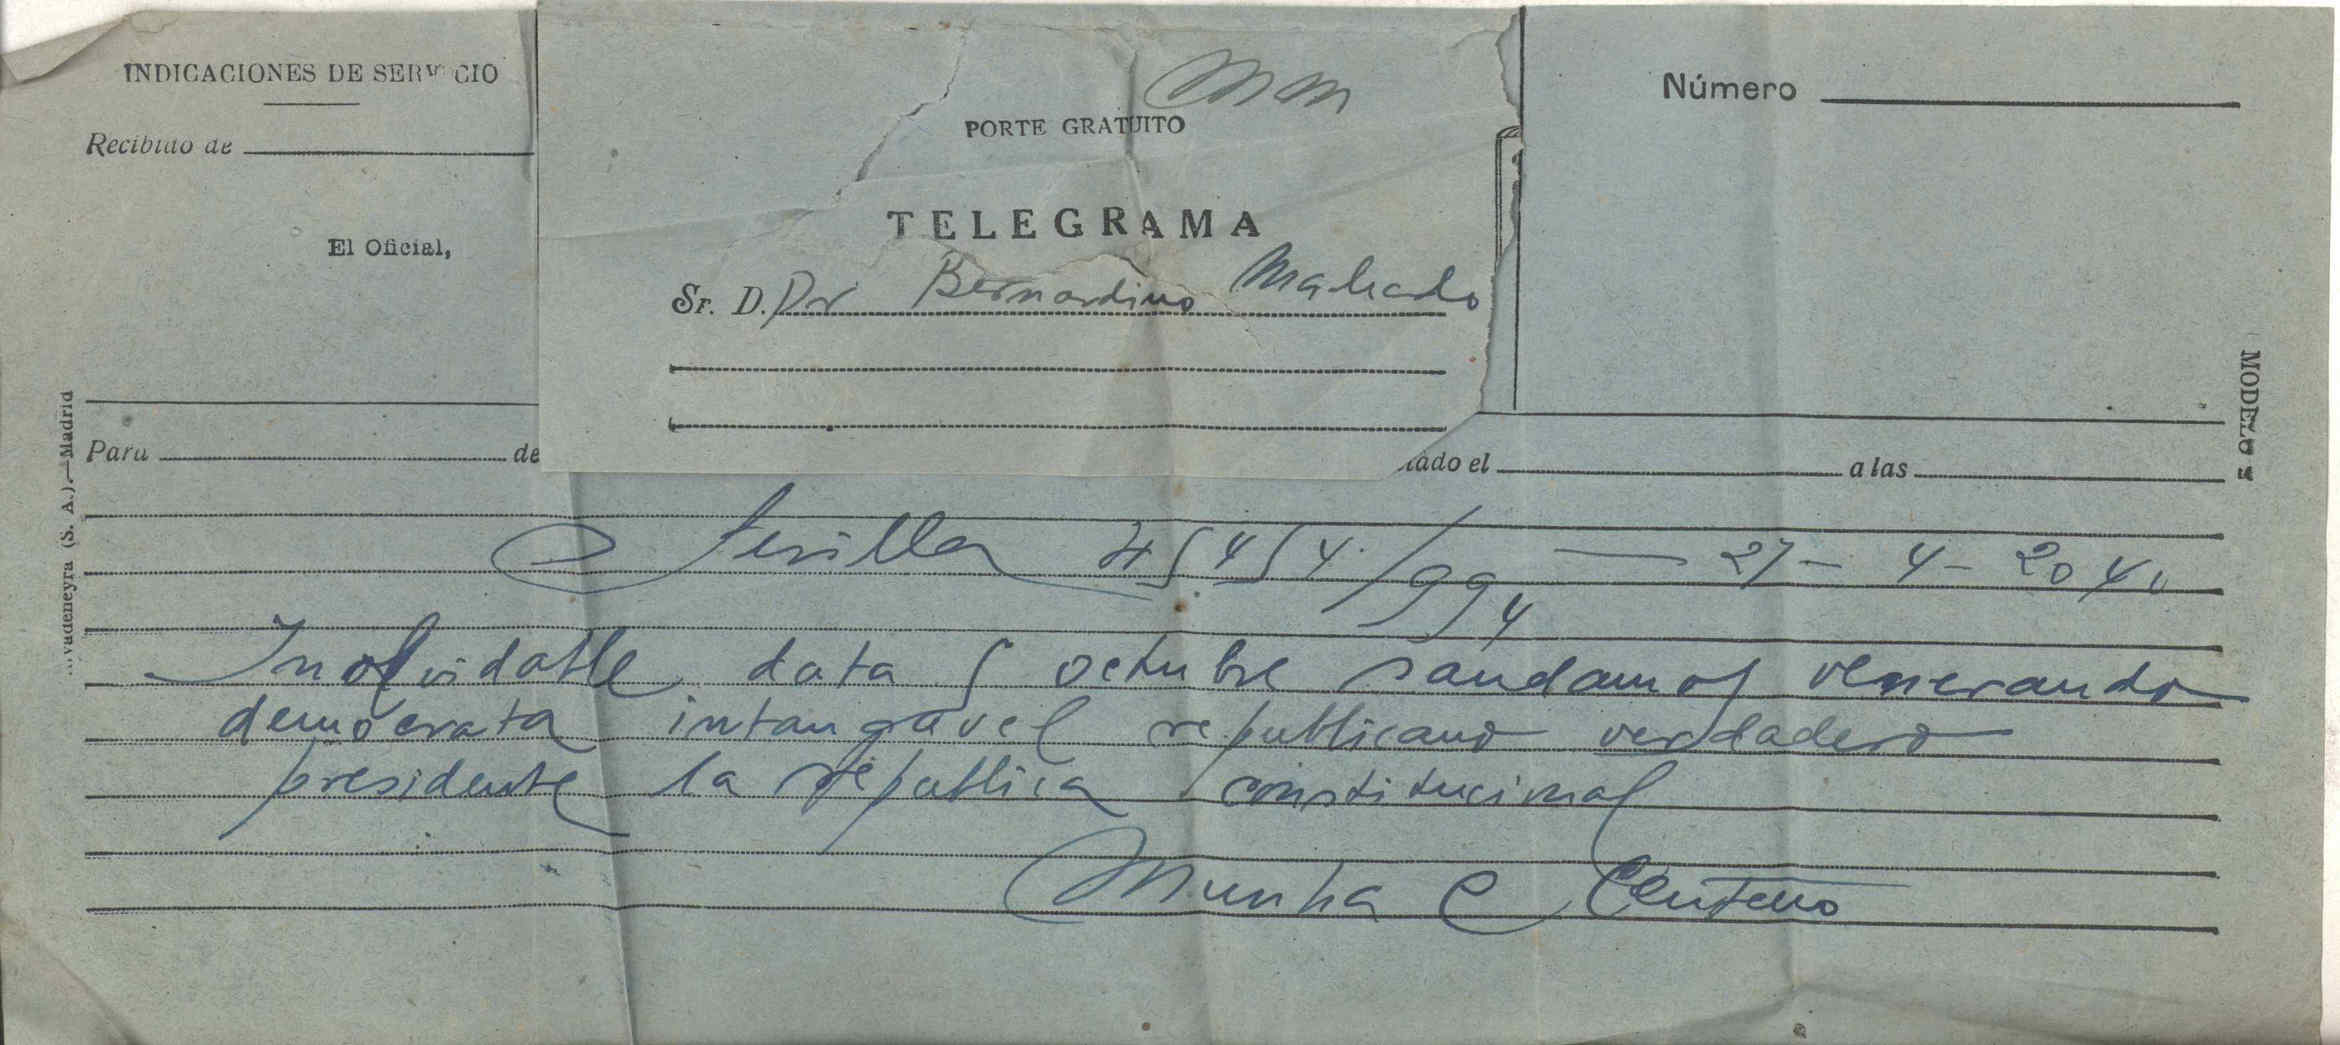 INDICACIONES DE SERVICIO
Recibido de
El Oficial,
PORTE GRATUITO
TELEGRAMA
Sr. D. Dr Bernardino Machado
Número
MODELO
Para de
tado el a las
vadeneyra (S. A.).—Madrid
Sevilla 27 - 4 - 20
Inolvidable data 5 octubre saudamos venerando
democrata intangavel republicano verdadero
presidente la republica constitucional
Munha e Centeno